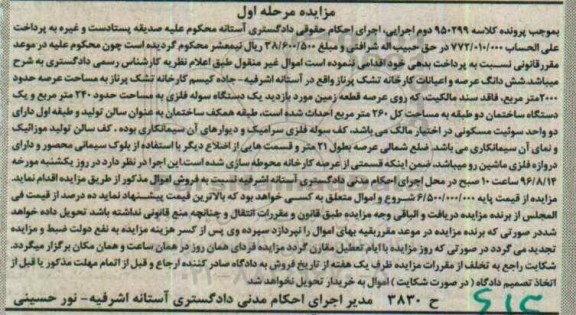 مزایده مرحله اول
بموجب پرونده کلاسه ۹۵۰۲۹۹ دوم اجرایی، اجرای احکام حقوقی دادگستری آستانه محکوم علیه صدیقه پستادست و غیره به پرداخت
علی الحساب ۷۷۲/۰۱۰/۰۰۰ در حق حبیب اله شرافتی و مبلغ ۳۸/۶۰۰/۵۰۰ ریال نیمعشر محکوم گردیده است چون محکوم علیه در موعد
مقرر قانونی نسبت به پرداخت بدهی خود اقدامی ننموده است اموال غیر منقول طبق اعلام نظریه کارشناس رسمی دادگستری به شرح
میباشد.شش دانگ عرصه و اعیانات کارخانه تشک پرناز واقع در آستانه اشرفیه- جاده کیسم کارخانه تشک پرناز به مساحت عرصه حدود
۲۰۰۰متر مربع، فاقد سند مالکیت، که روی عرصه قطعه زمین مورد بازدید یک دستگاه سوله فلزی به مساحت حدود ۲۴۰ متر مربع و یک
دستگاه ساختمان دو طبقه به مساحت کل ۲۶۰ متر مربع احداث شده است، طبقه همکف ساختمان به عنوان سالن تولید و طبقه اول دارای
دو واحد سوئیت مسکونی در اختیار مالک می باشد، کف سوله فلزی سرامیک و دیوارهای آن سیمانکاری بوده ، کف سالن تولید موزائیک
و نمای آن سیمانکاری می باشد. ضلع شمالی عرصه بطول ۲۱ متر و قسمت هایی از اضلاع دیگر با استفاده از بلوک سیمانی محصور و دارای
دروازه فلزی ماشین رو میباشد، ضمن اینکه قسمتی از عرصه کارخانه محوطه سازی شده است.این اجرا در نظر دارد در روز یکشنبه مورخه
۹۶/۸/۱۴ ساعت ۱۰ صبح در محل اجرای احکام مدنی دادگستری آستانه اشرفیه نسبت به فروش اموال مذکور از طریق مزایده اقدام نماید.
مزایده از قیمت پایه ۶/۵۰۰/۰۰۰/۰۰۰ شروع و اموال متعلق به کسی خواهد بود که بالاترین قیمت پیشنهاد نماید ده درصد از قیمت فی
المجلس از برنده مزایده دریافت و الباقی وجه مزایده طبق قانون و مقررات انتقال و چنانچه منع قانونی نداشته باشد تحویل داده خواهد
شد در صورتی که برنده مزایده در موعد مقرر بقیه بهای اموال را نپردازد سپرده وی پس از کسر هزینه مزایده به نفع دولت ضبط و مزایده
تجدید می گردد در صورتی که روز مزایده با ایام تعطیل مقارن گردد مزایده فردای همان روز در همان ساعت و همان مکان برگزار میگردد.
شکایت راجع به تخلف از مقررات مزایده ظرف یک هفته از تاریخ فروش به دادگاه صادر کننده ارجاع و قبل از اتمام مهلت مذکور یا قبل از
اتخاذ تصمیم دادگاه ( در صورت شکایت ) اموال به خریدار تحویل نخواهد شد
ح ۳۸۳۰ مدیر اجرای احکام مدنی دادگستری آستانه اشرفیه- نور حسینی